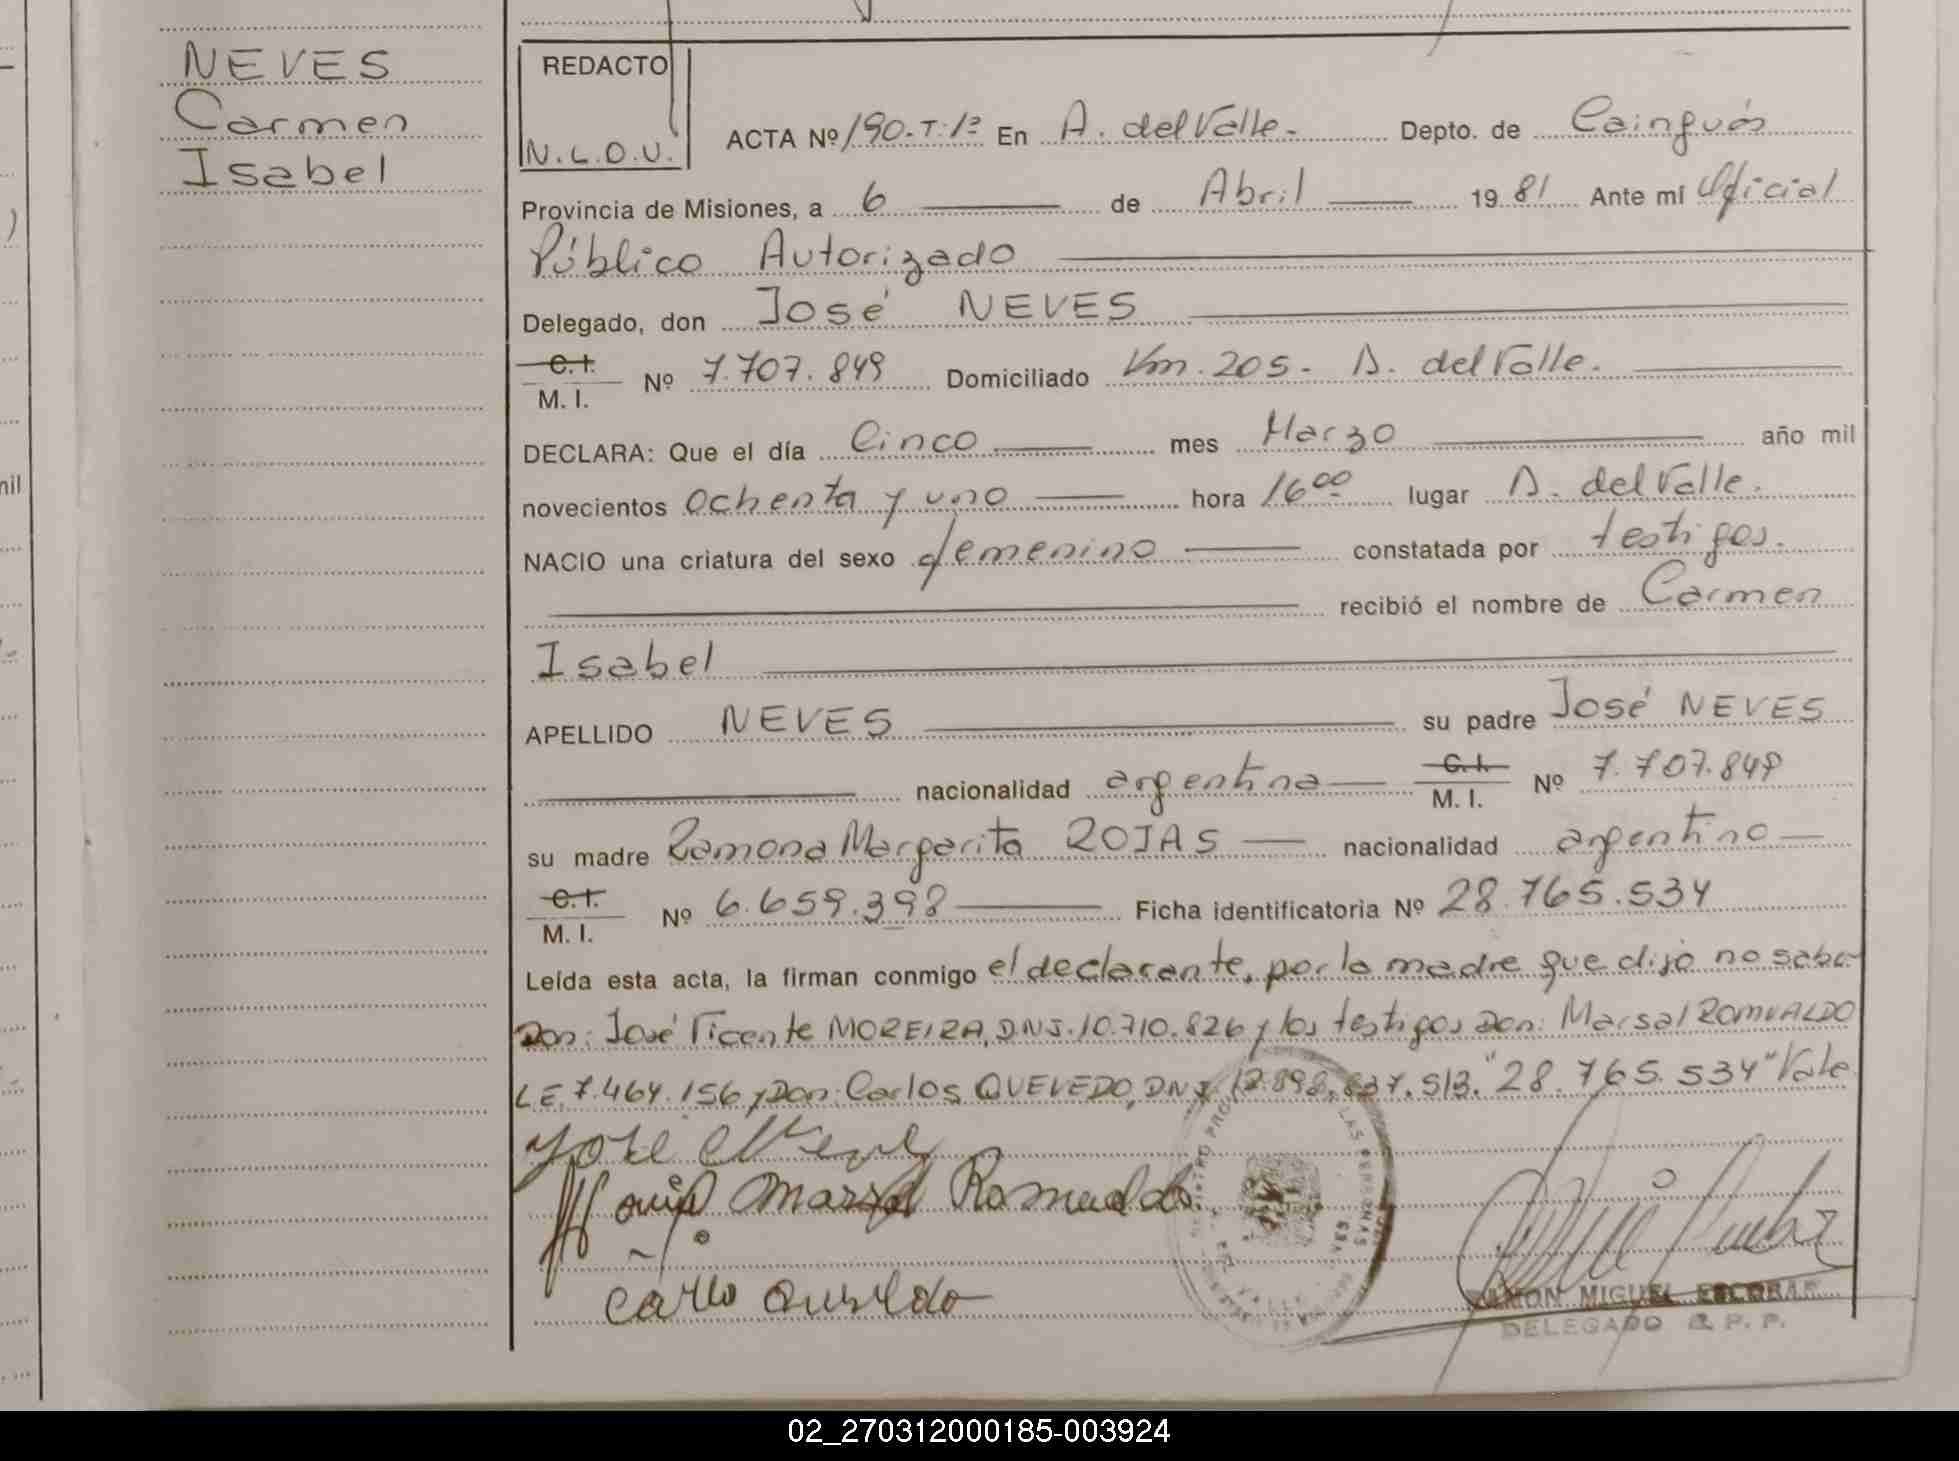 NEVES
Carmen
Isabel
REDACTO
N.L.O.U.
ACTA Nº 190-T:1º En A. del Valle.- Depto. de Cainguás
Provincia de Misiones, a 6 de Abril 19 81 Ante mí Oficial
Público Autorizado
Delegado, don José NEVES
C. I.
M. I. Nº 7.707.849 Domiciliado Km. 205.- A. del Valle.
DECLARA: Que el día Cinco mes Marzo año mil
novecientos ochenta y uno hora 16⁰⁰ lugar A. del Valle.
NACIO una criatura del sexo femenino constatada por testigos.
recibió el nombre de Carmen
Isabel
APELLIDO NEVES su padre José NEVES
nacionalidad argentina C. I. M. I. Nº 7.707.849
su madre Ramona Margarita ROJAS nacionalidad argentina
C. I.
M. I. Nº 6.659.398 Ficha identificatoria Nº 28.765.534
Leída esta acta, la firman conmigo el declarante, por la madre que dijo no saber
Don: José Vicente MOREIRA, DNI. 10.710.826 y los testigos Don: Marsal ROMUALDO
LE. 7.464.156 y Don: Carlos QUEVEDO, DNI. 12.898.837. S/B. "28.765.534" Vale
José Neve
Marsal Romualdo
Carlo Quevedo
RAMON MIGUEL ESCOBAR
DELEGADO R. P. P.
02_270312000185-003924